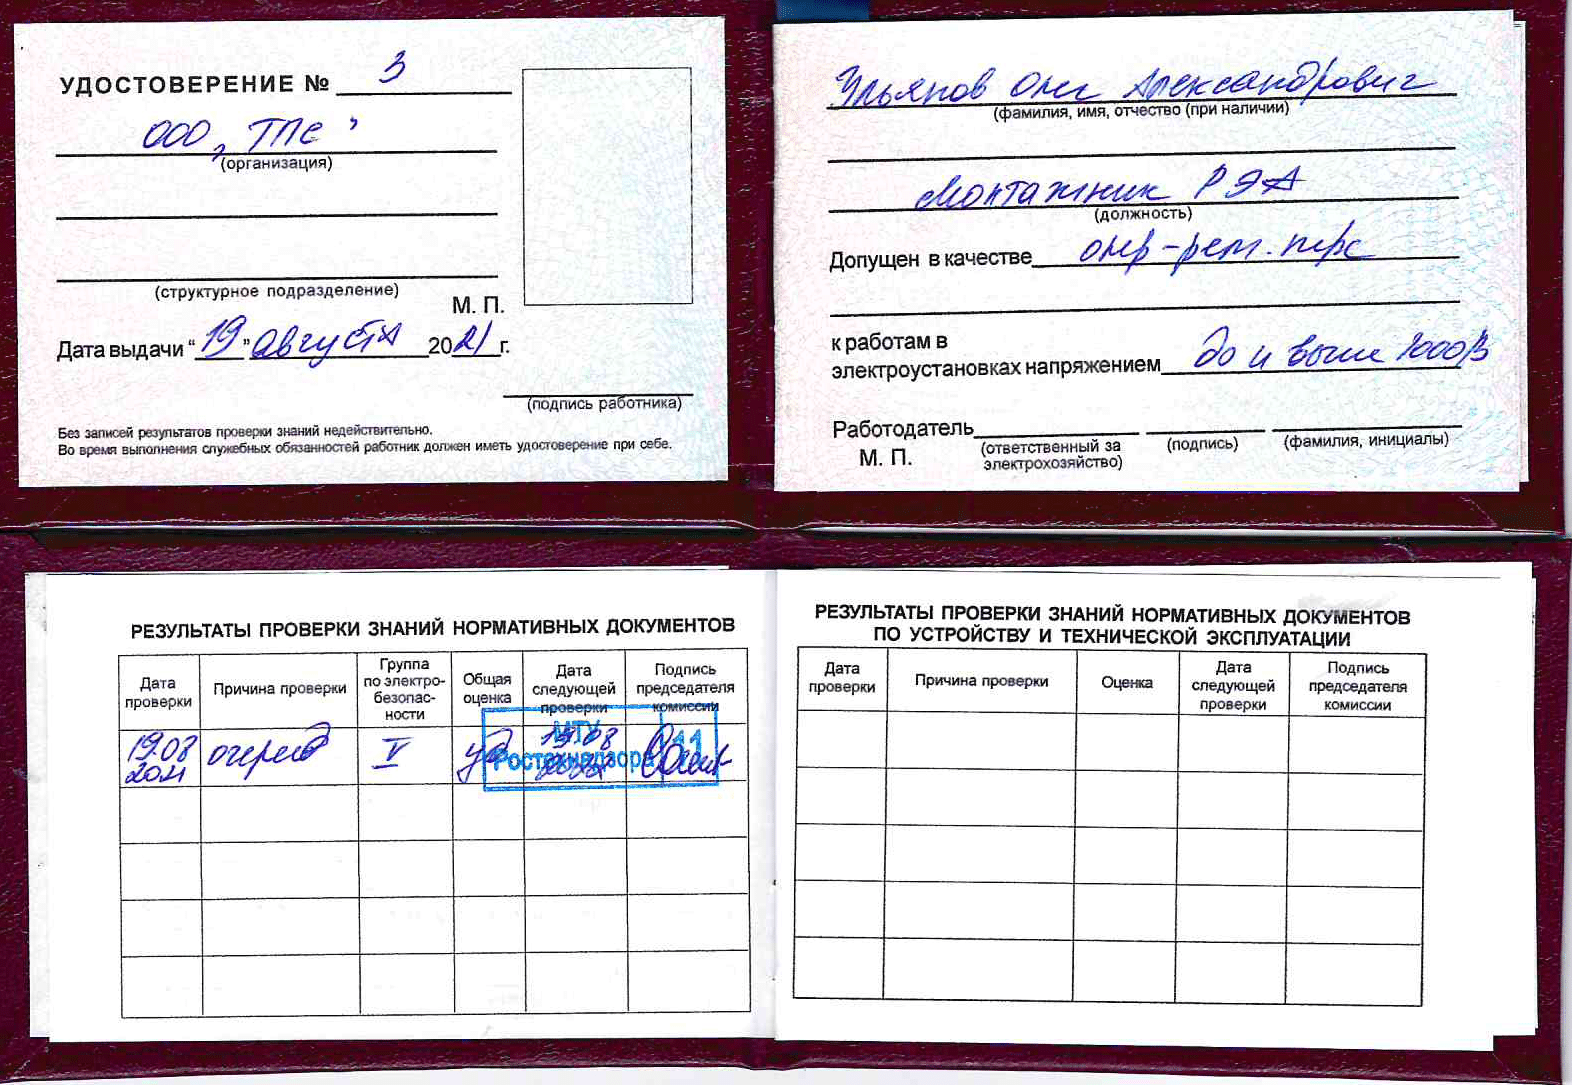 УДОСТОВЕРЕНИЕ № 3
ООО „ТПС"
(организация)
(структурное подразделение)
М. П.
Дата выдачи “19” августа 2021 г.
(подпись работника)
Без записей результатов проверки знаний недействительно.
Во время выполнения служебных обязанностей работник должен иметь удостоверение при себе.
Ульянов Олег Александрович
(фамилия, имя, отчество (при наличии)
Монтажник РЭА
(должность)
Допущен в качестве опер-рем. перс
к работам в
электроустановках напряжением до и выше 1000В
Работодатель
М. П.
(ответственный за
электрохозяйство)
(подпись)
(фамилия, инициалы)
РЕЗУЛЬТАТЫ ПРОВЕРКИ ЗНАНИЙ НОРМАТИВНЫХ ДОКУМЕНТОВ
Дата
проверки
Причина проверки
Группа
по электро-
безопас-
ности
Общая
оценка
Дата
следующей
проверки
Подпись
председателя
комиссии
19.08
2021
очеред
V
уд
19.08
2022
МТУ
Ростехнадзора
11
РЕЗУЛЬТАТЫ ПРОВЕРКИ ЗНАНИЙ НОРМАТИВНЫХ ДОКУМЕНТОВ
ПО УСТРОЙСТВУ И ТЕХНИЧЕСКОЙ ЭКСПЛУАТАЦИИ
Дата
проверки
Причина проверки
Оценка
Дата
следующей
проверки
Подпись
председателя
комиссии